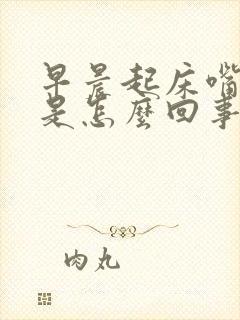 早晨起床嘴
是怎麼回事
肉丸